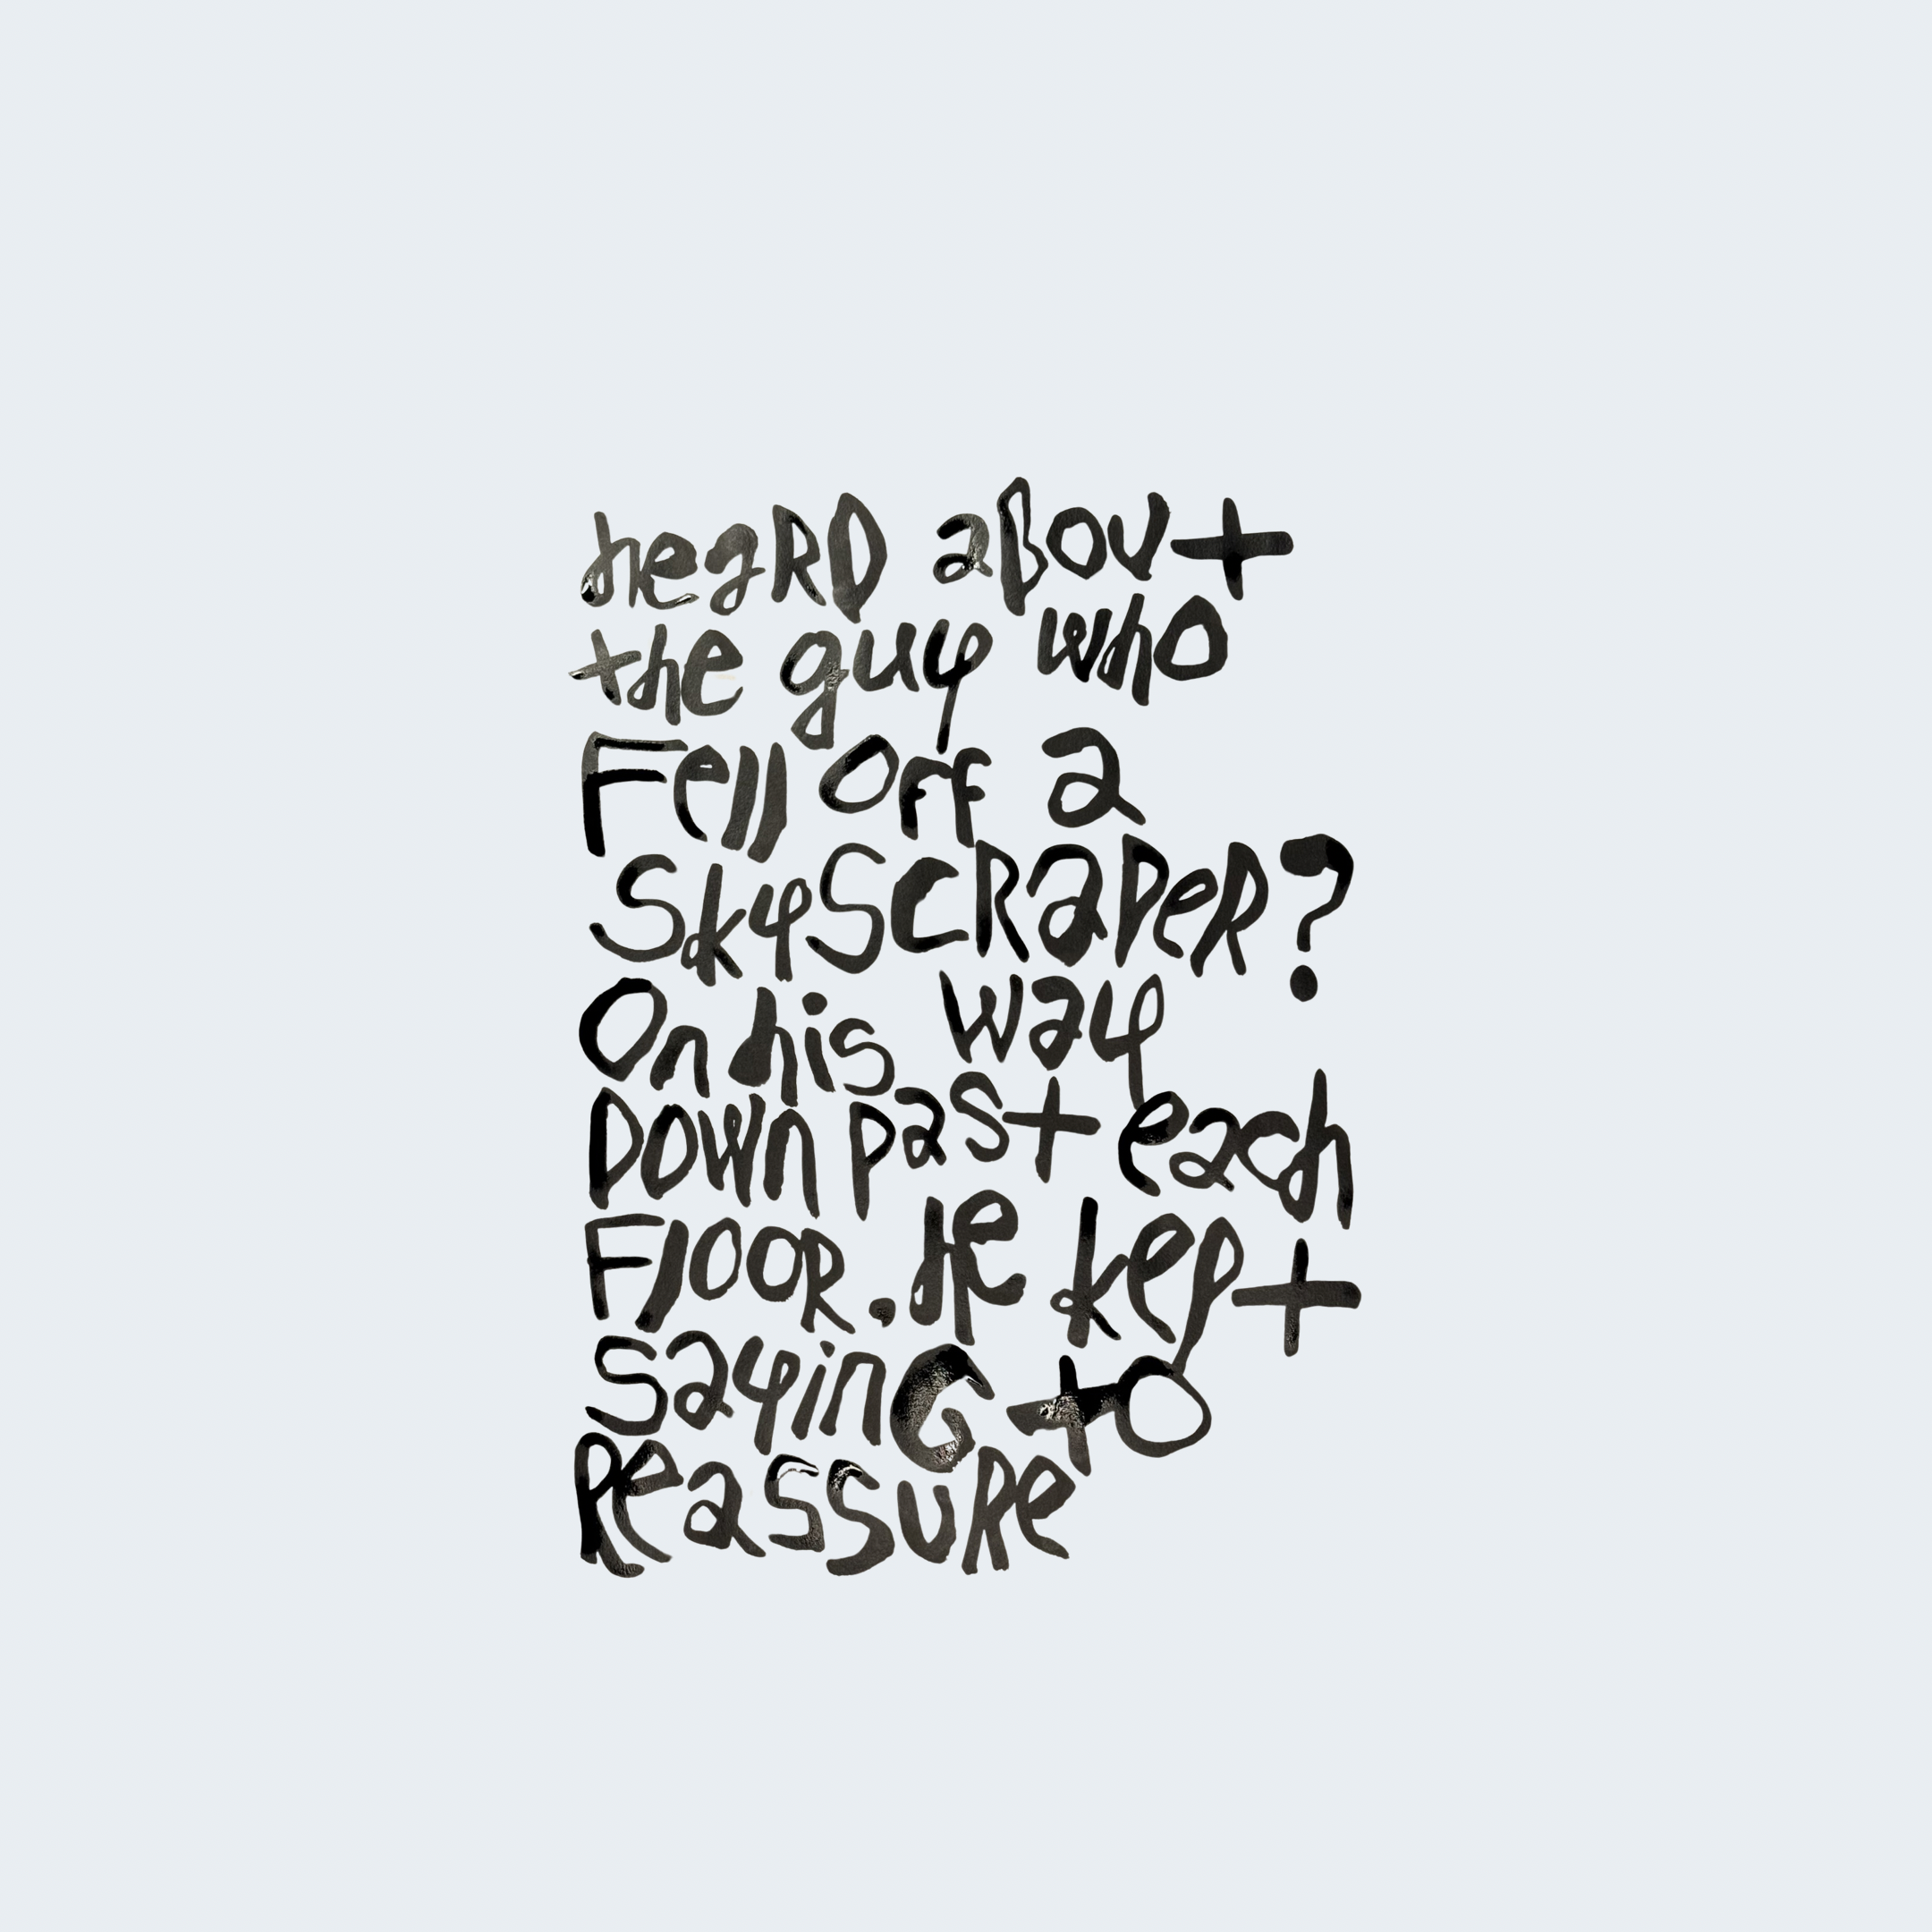 heaRD about
the guy who
Fell OFF a
SkyScRapeR?
On his way
Down past each
FlooR. He kept
sayinG to
ReassuRe